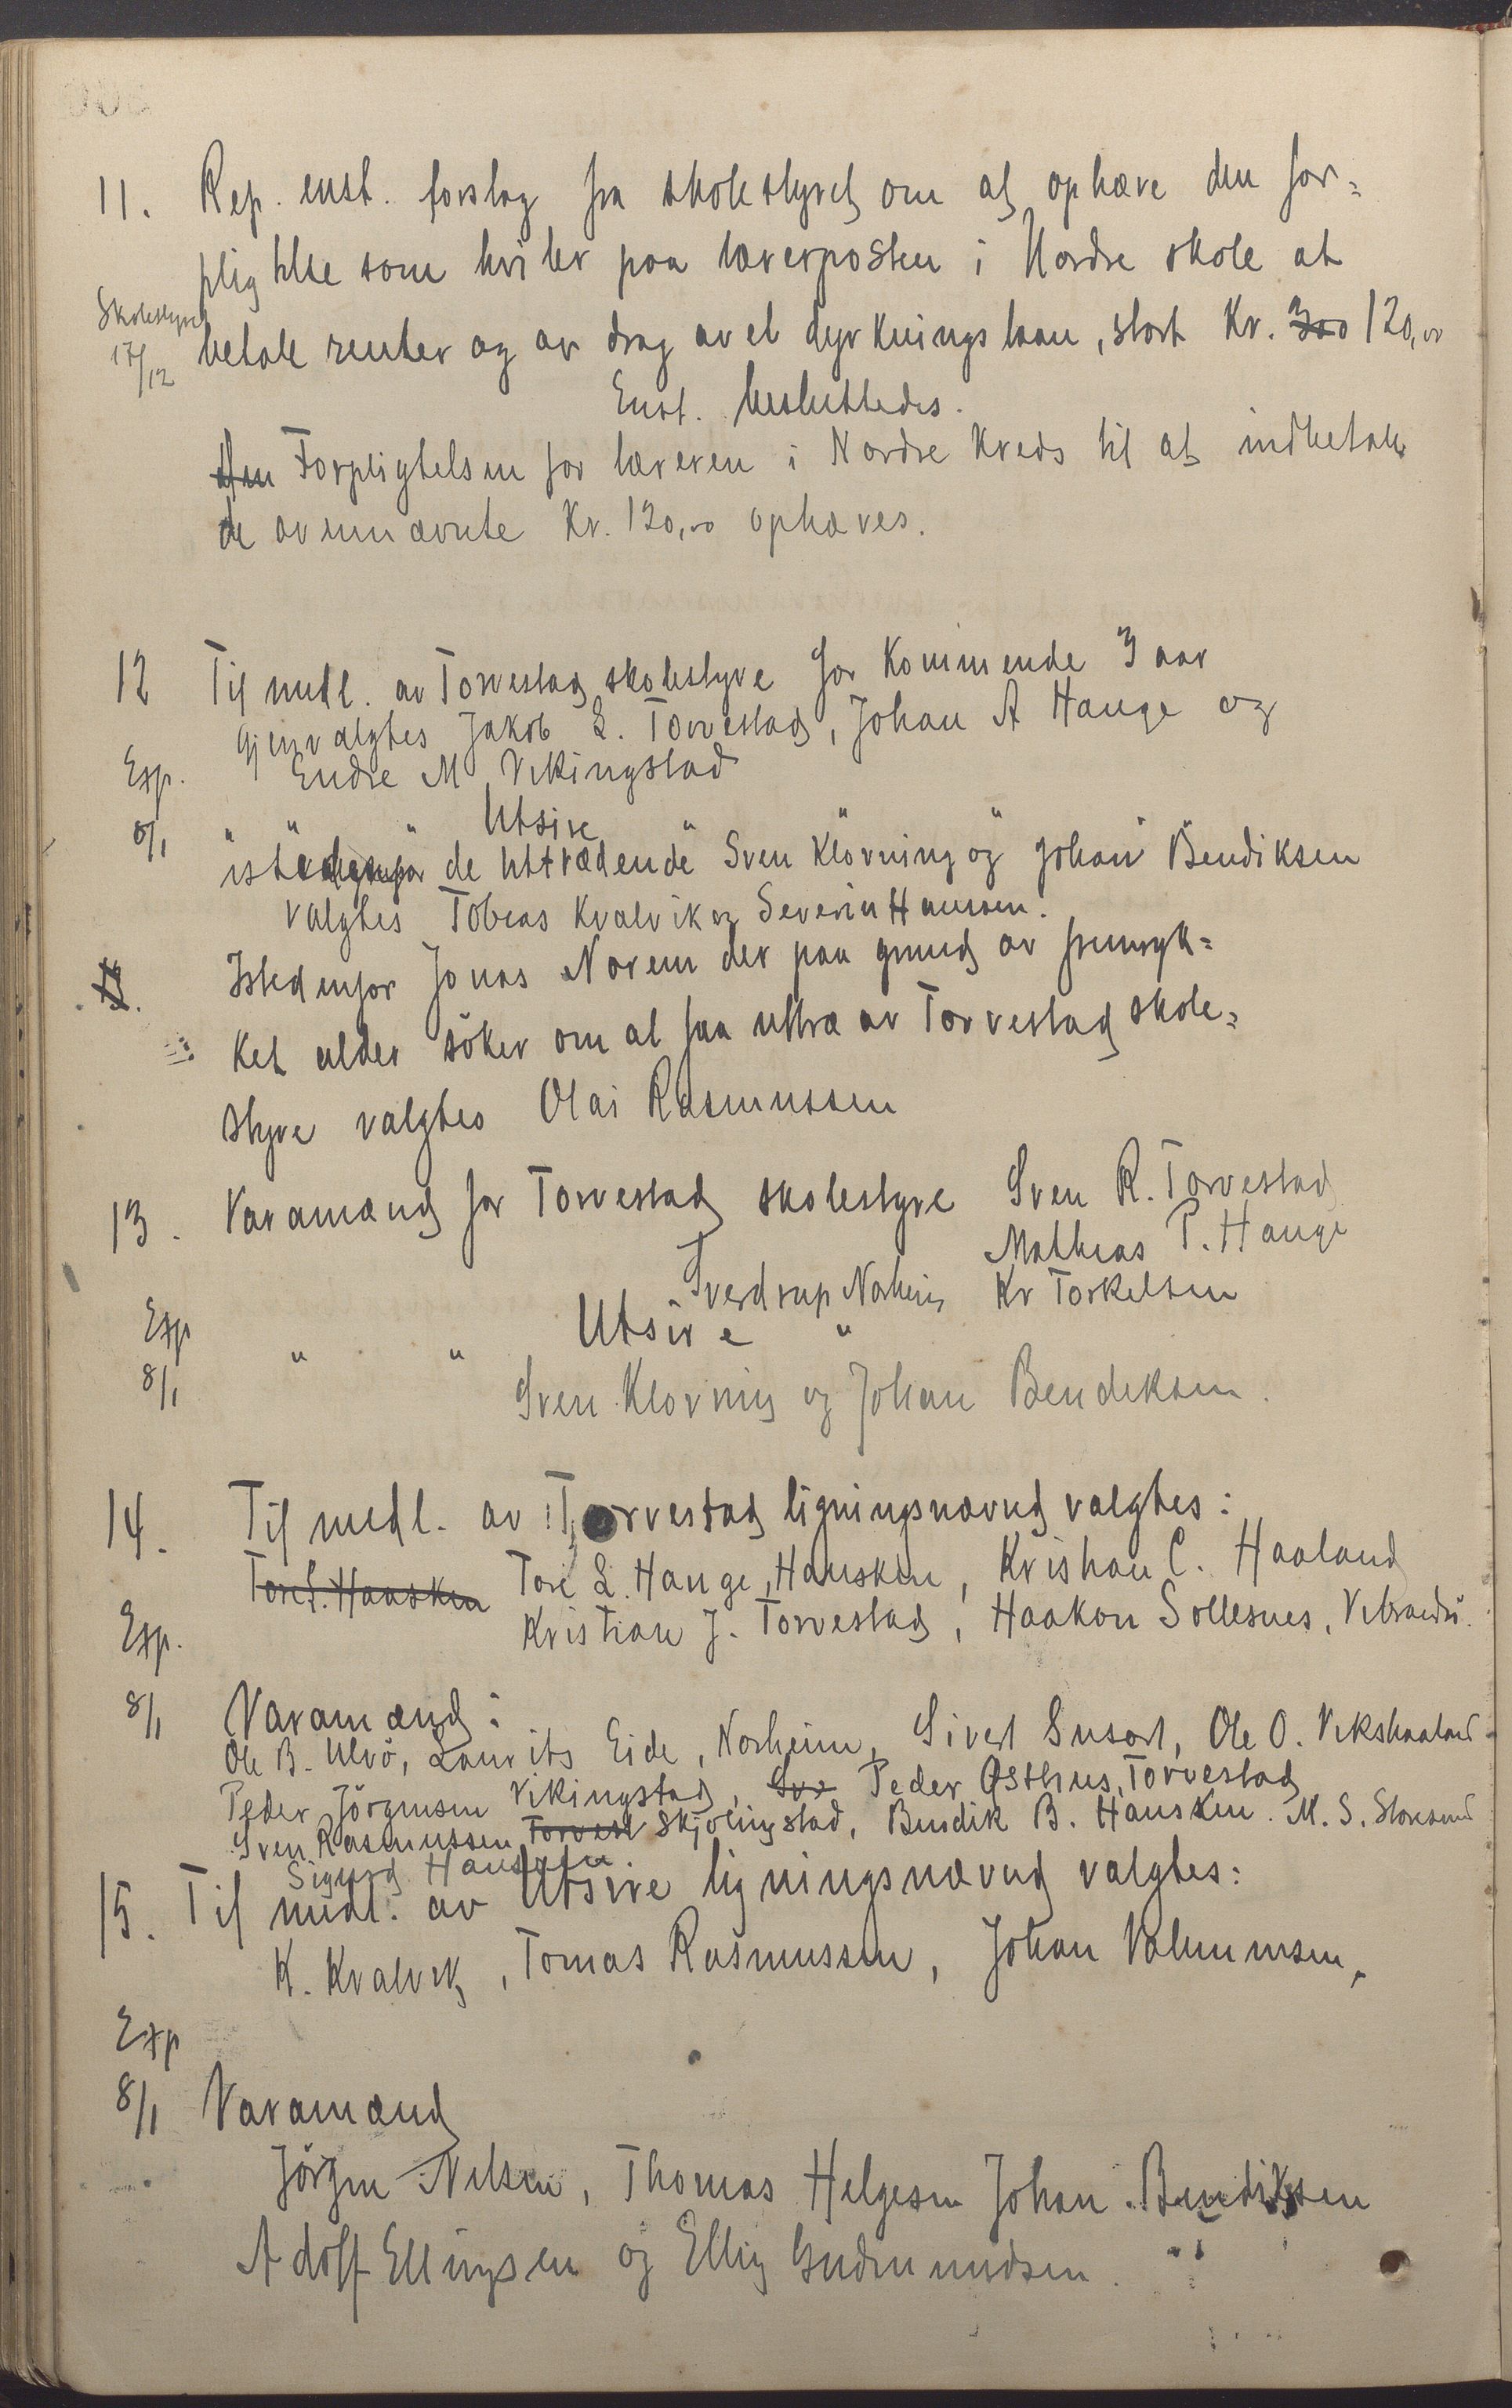 11. Rep. enst. forslag fra skolestyret om at ophæve den for=
pligtelse som hviler paa lærerposten i Nordre skole at
Skolestyret
17/12
betale renter og avdrag av et dyrkningslaan, stort Kr. 300 120,00
Enst. besluttedes.
den Forpligtelsen for læreren i Nordre Kreds til at indbetale
de ovennævnte Kr. 120,00 ophæves.
12 Til medl. av Torvestad skolestyre for kommende 3 aar
gjenvalgtes Jakob L. Torvestad, Johan A Hauge og
Exp. Endre M Vikingstad
8/1 " " " Utsire " " " "
istedenfor de uttrædende Sven Klovning og Johan Bendiksen
valgtes Tobias Kvalvik og Severin Hansen.
Istedenfor Jonas Norem der paa grund av fremryk=
ket alder söker om at faa uttræ av Torvestad skole=
styre valgtes Olai Rasmussen
13. Varamænd for Torvestad skolestyre Sven R. Torvestad
Mathias P. Hauge
Sverdrup Norheim Kr Torkelsen
Exp " " Utsire "
8/1 Sven Klovning og Johan Bendiksen.
14. Til medl. av Torvestad ligningsnævnd valgtes:
Tore S. Haasken Tore L. Hauge, Hausken, Kristian C. Haaland
Exp. Kristian J. Torvestad, Haakon Sollesnes, Vibrandsö.
8/1 Varamænd:
Ole B. Ulvö, Laurits Eide, Norheim, Sivert Susort, Ole O. Vikshaaland
Peder Jörgensen Vikingstad, Sve Peder Østhus, Torvestad
Sven Rasmussen Torvest Skjölingstad, Bendik B. Hausken. M. S. Storesund
Sigurd Hausken.
15. Til medl. av Utsire ligningsnævnd valgtes:
K. Kvalvik, Tomas Rasmussen, Johan Valemmsen,
Exp
8/1 Varamænd
Jörgen Nilsen, Thomas Helgesen Johan Bendiksen
Adolf Ellingsen og Elling Gudmundsen.